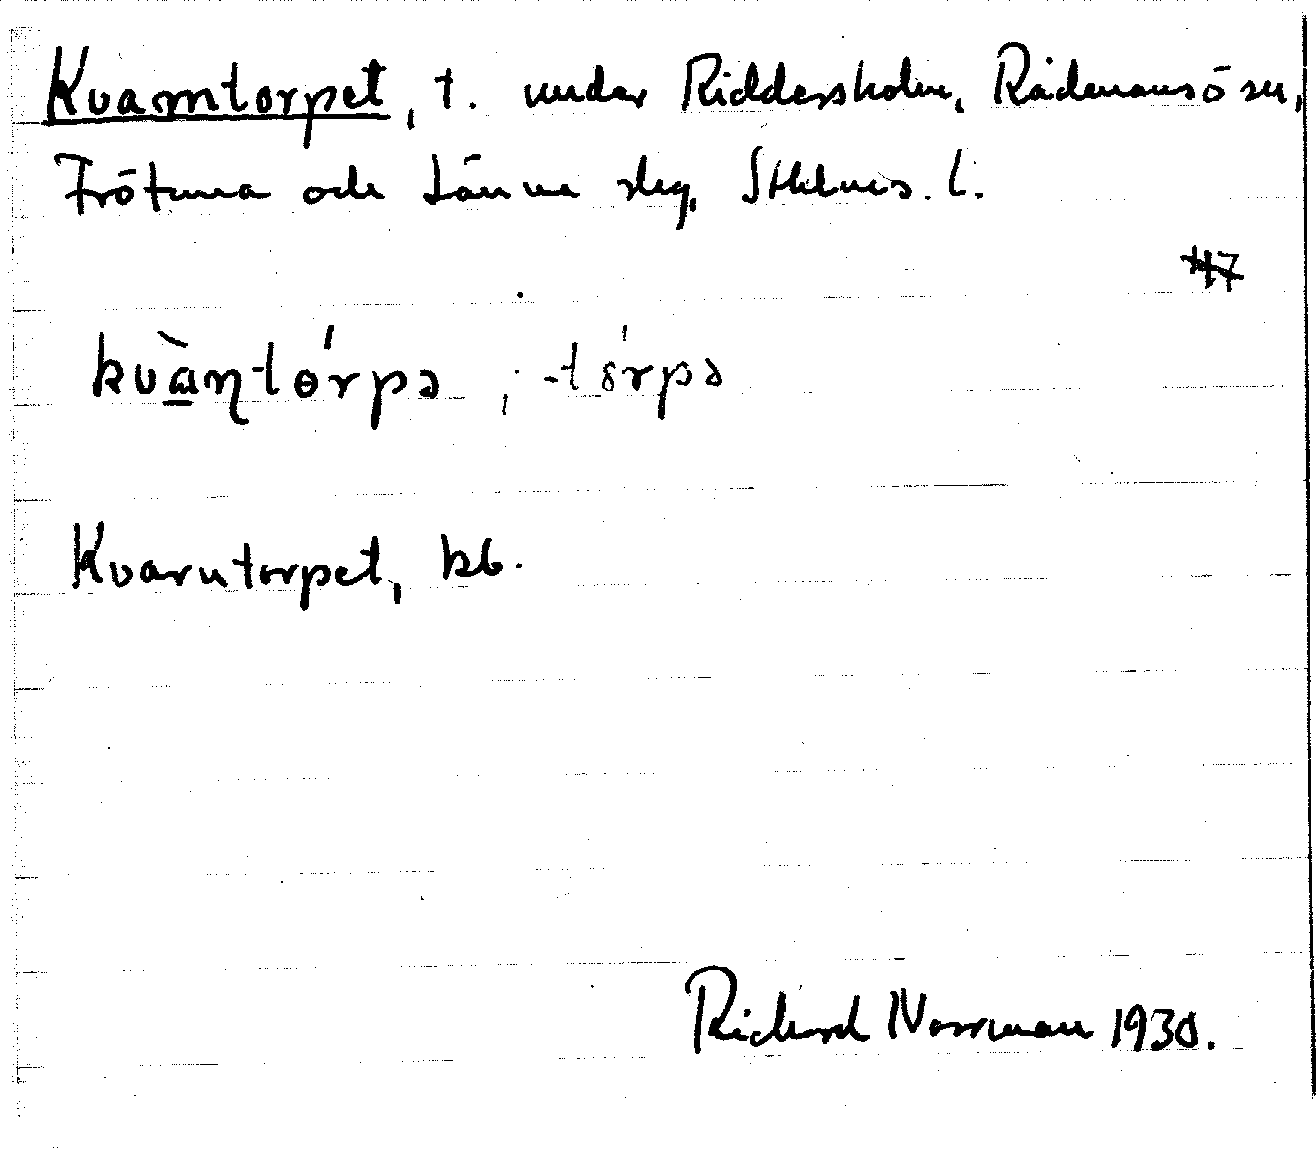 Kvarntorpet, t. under Riddersholm, Rådmansö sn,
Frötuna och Länna skg, Sthlms. l.
447
kvàn̩tɵ́rpə, -tórpə
Kvarntorpet, kb.
Richard Norrman 1930.